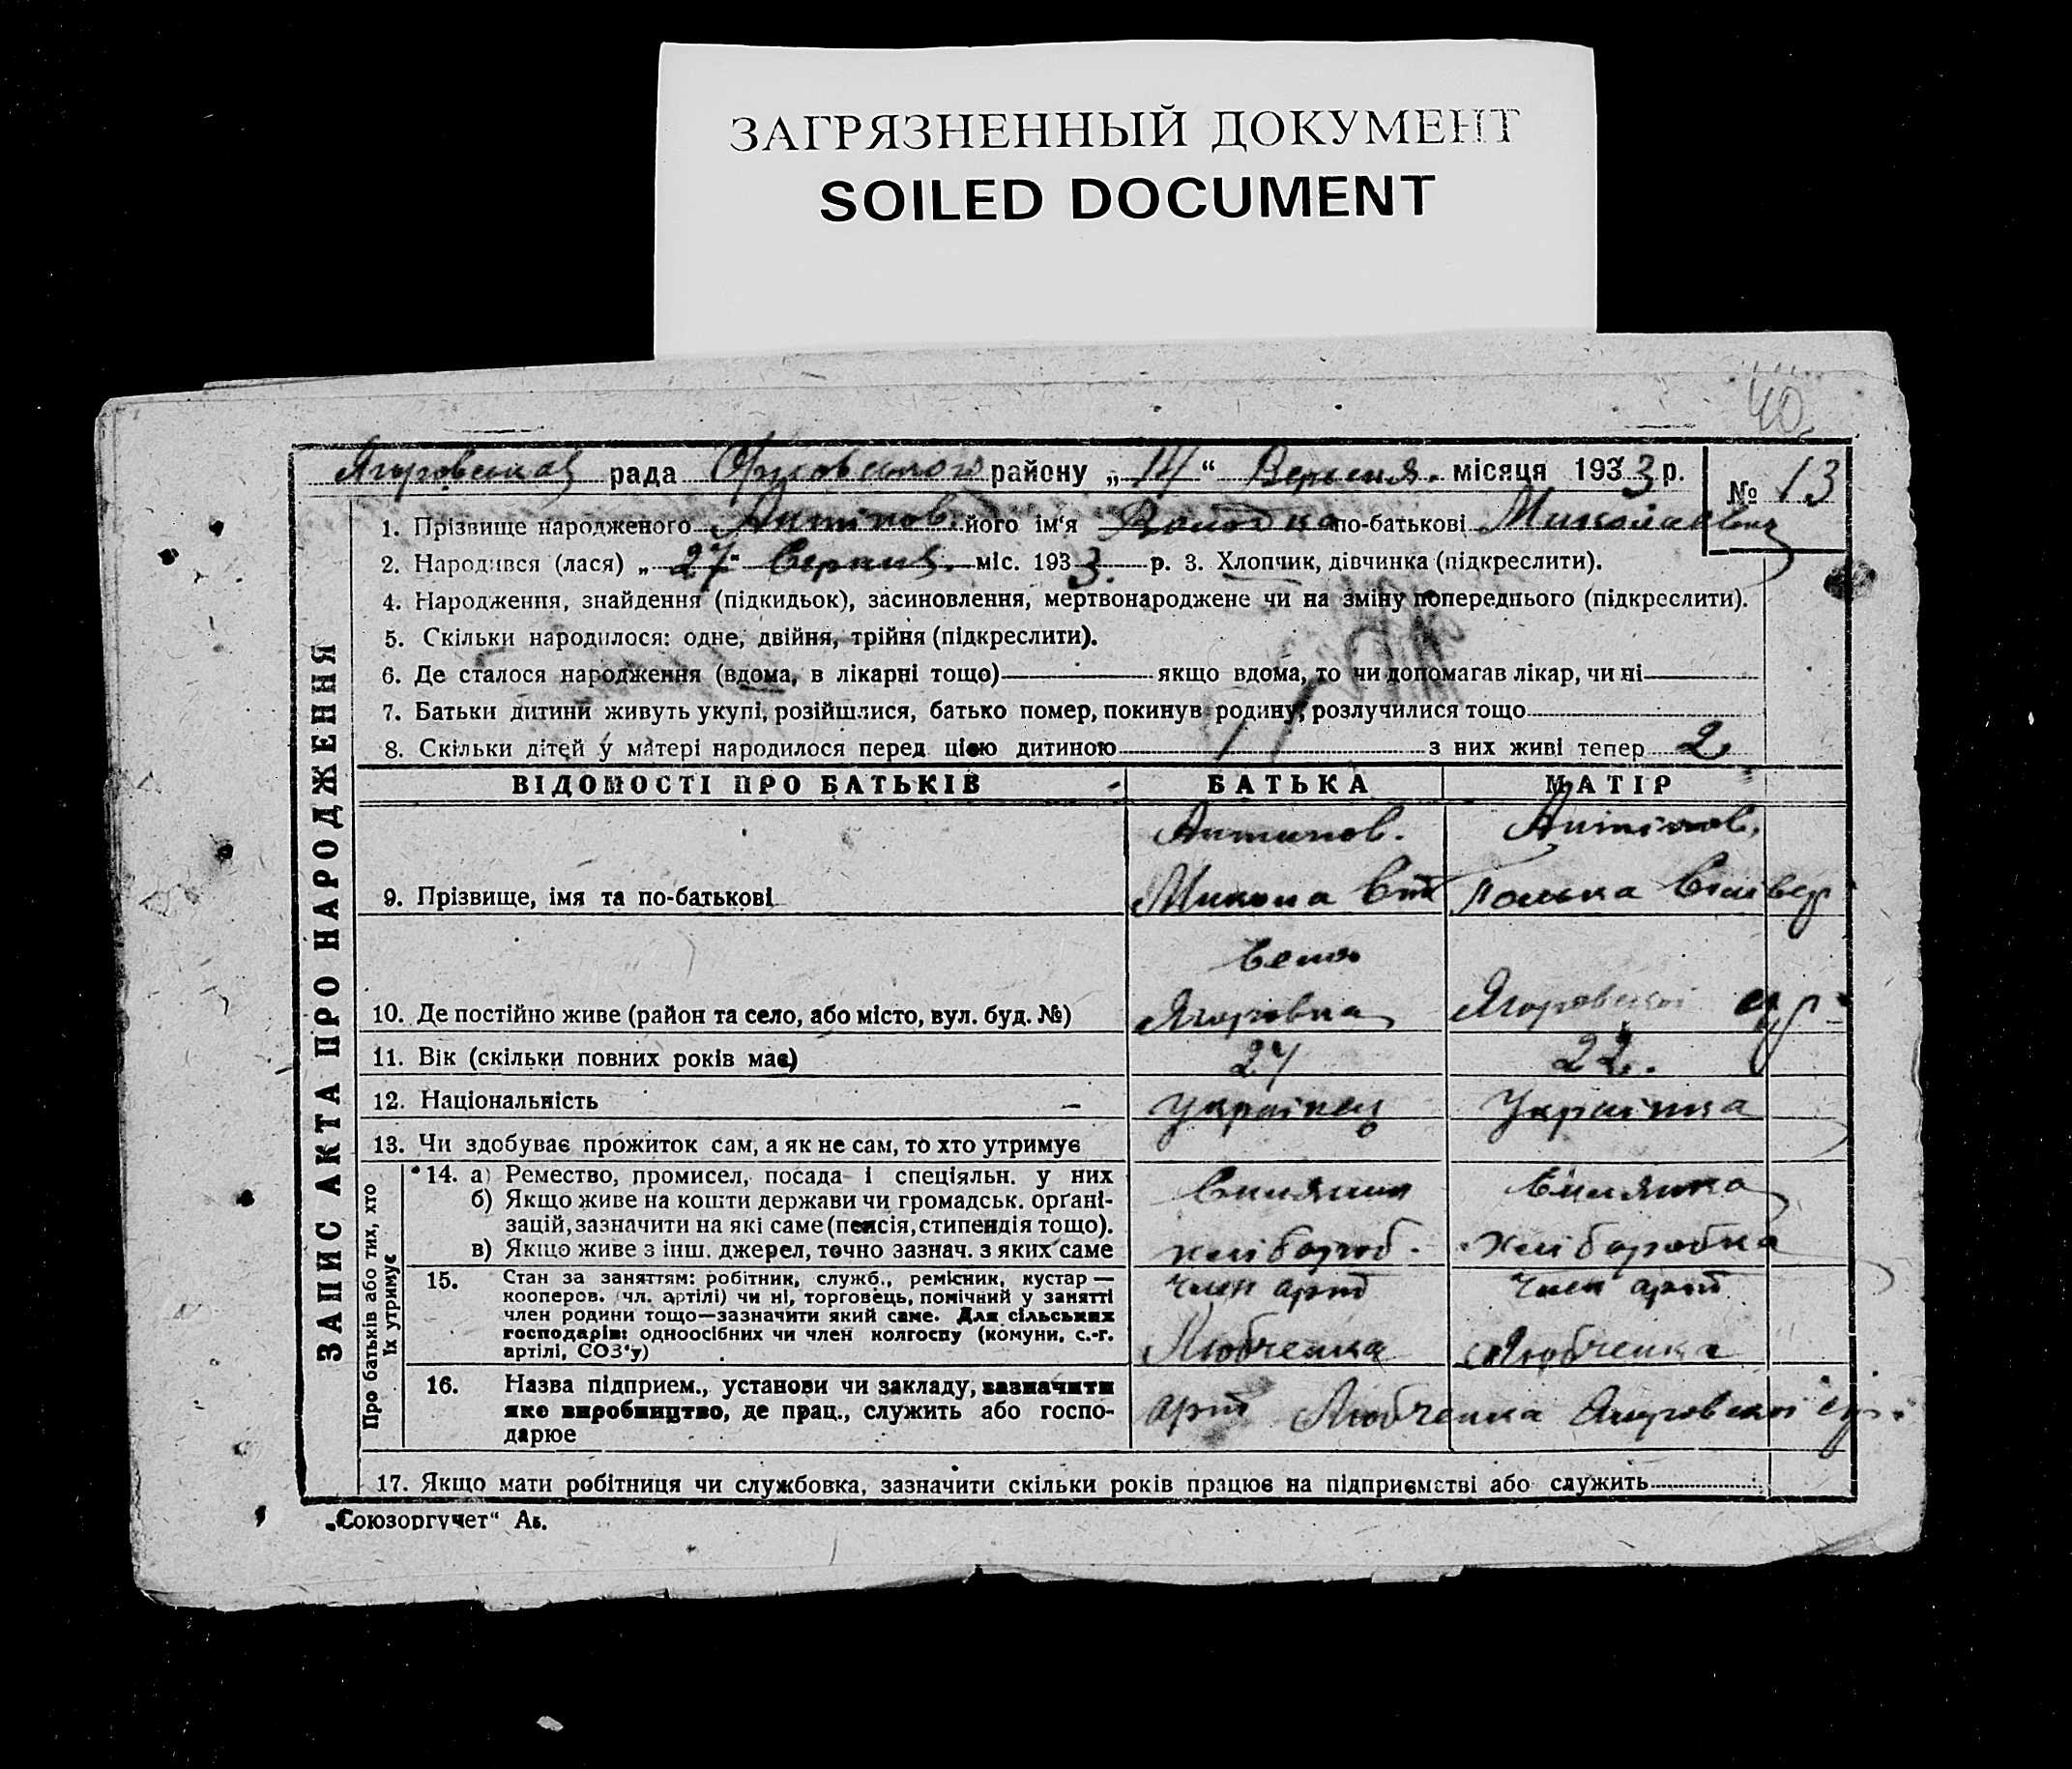 ЗАГРЯЗНЕННЫЙ ДОКУМЕНТ
SOILED DOCUMENT
40
Ягоровская рада району „14“ Вересня місяця 1933 р. № 13
1. Прізвище народженого Антіпов його ім‘я по-батькові Миколаєвич
2. Народився (лася) „27“ Серпня міс. 1933 р. 3. Хлопчик, дівчинка (підкреслити).
4. Народження, знайдення (підкидьок), засиновлення, мертвонароджене чи на зміну попереднього (підкреслити).
5. Скільки народилося: одне, двійня, трійня (підкреслити).
6. Де сталося народження (вдома, в лікарні тощо) якщо вдома, то чи допомагав лікар, чи ні
7. Батьки дитини живуть укупі, розійшлися, батько помер, покинув родину, розлучилися тощо
8. Скільки дітей у матері народилося перед цією дитиною 1 з них живі тепер 2
ЗАПИС АКТА ПРО НАРОДЖЕННЯ
ВІДОМОСТІ ПРО БАТЬКІВ БАТЬКА МАТІР
Антипов. Антіпов.
9. Прізвище, імя та по-батькові Микола
село
10. Де постійно живе (район та село, або місто, вул. буд. №) Ягоровка Ягоровської с/р
11. Вік (скільки повних років має) 27 22.
12. Національність Українец Українка
13. Чи здобуває прожиток сам, а як не сам, то хто утримує
Про батьків або тих, хто їх утримує
14. а) Ремество, промисел, посада і спеціяльн. у них Селянин Селянка
б) Якщо живе на кошти держави чи громадськ. органі-
зацій, зазначити на які саме (пенсія, стипендія тощо).
в) Якщо живе з інш. джерел, точно зазнач. з яких саме хлібороб. хліборобка
15. Стан за заняттям: робітник, служб., ремісник, кустар — член арт член арт
кооперов. (чл. артілі) чи ні, торговець, помічний у занятті
член родини тощо—зазначити який саме. Для сільських
господарів: одноосібних чи член колгоспу (комуни, с.-г.
артілі, СОЗ‘у) Любченка Любченка
16. Назва підприєм., установи чи закладу, зазначити
яке виробництво, де прац., служить або госпо- арт Любченка Ягоровської с/р.
дарює
17. Якщо мати робітниця чи службовка, зазначити скільки років працює на підприємстві або служить
„Союзоргучет“